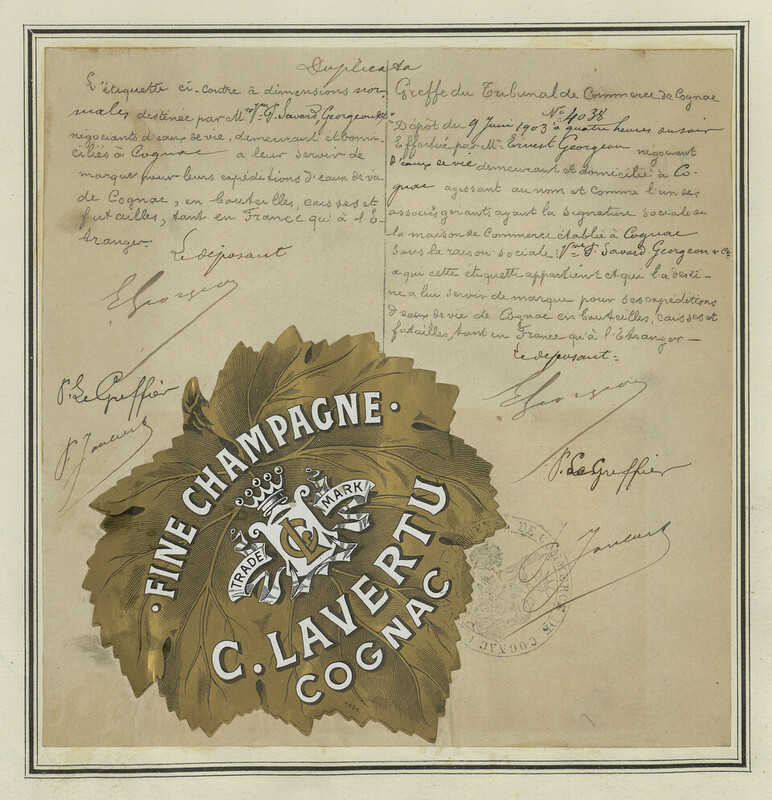 Duplicata
L'étiquette ci-contre à dimensions nor-
males destinée par Mrs Vve P. Savard, Georgeon & Cie
négociants d'eaux de vie, demeurant et domi-
ciliés à Cognac a leur servir de
marque pour leurs expéditions d'eaux de vie
de Cognac, en bouteilles, caisses et
futailles, tant en France qu'à l'E-
tranger.
Le déposant
E Georgeon
P. Le Greffier
P. Joubert
Greffe du Tribunal de Commerce de Cognac
No 4038
Dépôt du 9 Juin 1903 à quatre heures du soir
Effectué par Mr Ernest Georgeon négociant
d'eaux de vie demeurant et domicilié à Co-
gnac agissant au nom et comme l'un des
associés gérants ayant la signature sociale de
la maison de Commerce établie à Cognac
sous la raison sociale: Vve P. Savard, Georgeon & Cie
a qui cette étiquette appartient et qui l'a desti-
née a lui servir de marque pour ses expéditions
d'eaux de vie de Cognac en bouteilles, caisses et
futailles, tant en France qu'à l'Etranger—
Le déposant:
E Georgeon
P. Le Greffier
P. Joubert
FINE CHAMPAGNE
TRADE MARK
C. LAVERTU
COGNAC
DE COMMERCE DE COGNAC